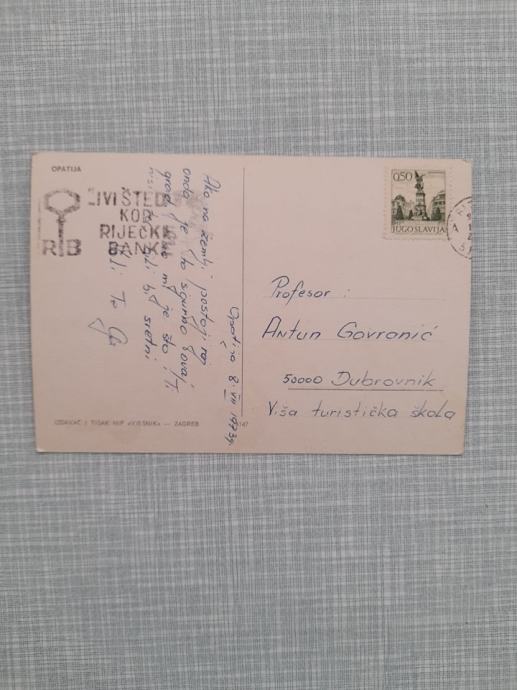 OPATIJA
ŽIVI ŠTED
KOR
RIJEČKE
BANK
RB
Ako na zemlji postoji raj
onda je to sigurno ovaj
grad
mi je što
bi bili sretni
Opatija 8. VII 1973g.
0,50
JUGOSLAVIJA
Profesor:
Antun Govronić
50000 Dubrovnik
Viša turistička škola
IZDAVAČ I TISAK NIP «VJESNIK» — ZAGREB